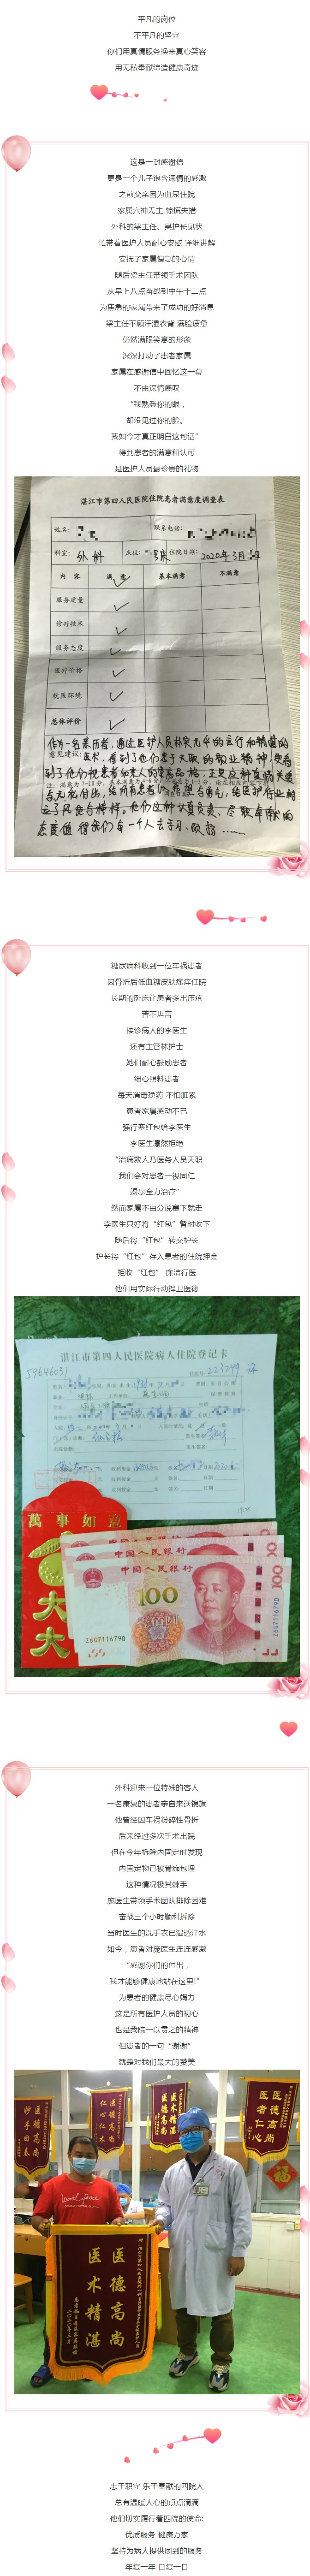 平凡的岗位
不平凡的坚守
你们用真情服务换来真心笑容
用无私奉献缔造健康奇迹
这是一封感谢信
更是一个儿子饱含深情的感激
之前父亲因为血尿住院
家属六神无主 惊慌失措
外科的梁主任、吴护长见状
忙带着医护人员耐心安慰 详细讲解
安抚了家属惶急的心情
随后梁主任带领手术团队
从早上八点奋战到中午十二点
为焦急的家属带来了成功的好消息
梁主任不顾汗湿衣背 满脸疲惫
仍然满眼笑意的形象
深深打动了患者家属
家属在感谢信中回忆这一幕
不由深情感叹
“我熟悉你的眼，
却没见过你的脸。
我如今才真正明白这句话”
得到患者的满意和认可
是医护人员最珍贵的礼物
湛江市第四人民医院住院患者满意度调查表
姓名：
联系电话：
科室： 外科 床位： 床 住院日期： 2020年3月
内 容 满 意 基本满意 不满意
服务质量
诊疗技术
服务态度
医疗价格
就医环境
总体评价
意见建议：
作为一名亲历者，通过医护人员朴实无华的言行和精湛的
医术，看到了他们忠于天职的敬业精神，使
到了他们视患者如亲人的崇高品格，
与无私付出，给所有患者以希望与勇气，给医护行业树
立了风范与榜样。他们这种以身负责、尽职奉献的
态度值得我们每一个人去学习、
糖尿病科收到一位车祸患者
因骨折后低血糖皮肤瘙痒住院
长期的卧床让患者多出压疮
苦不堪言
接诊病人的李医生
还有主管林护士
她们耐心鼓励患者
细心照料患者
每天消毒换药 不怕脏累
患者家属感动不已
强行塞红包给李医生
李医生凛然拒绝
“治病救人乃医务人员天职
我们会对患者一视同仁
竭尽全力治疗”
然而家属不由分说塞下就走
李医生只好将“红包”暂时收下
随后将“红包”转交护长
护长将“红包”存入患者的住院押金
拒收“红包” 廉洁行医
他们用实际行动捍卫医德
湛江市第四人民医院病人住院登记卡
59646031
萬事如意
大大
中国人民银行
中国人民银行
中国人民银行
100
100
Z6G7116790
外科迎来一位特殊的客人
一名康复的患者亲自来送锦旗
他曾经因车祸粉碎性骨折
后来经过多次手术出院
但在今年拆除内固定时发现
内固定物已被骨痂包埋
这种情况极其棘手
庞医生带领手术团队排除困难
奋战三个小时顺利拆除
当时医生的洗手衣已湿透汗水
如今，患者对庞医生连连感激
“感谢你们的付出，
我才能够健康地站在这里！”
为患者的健康尽心竭力
这是所有医护人员的初心
也是我院一以贯之的精神
但患者的一句“谢谢”
就是对我们最大的赞美
妙手回春
医德高尚
医术精湛
医德高尚
医者仁心
医德高尚
福
医德高尚
医术精湛
忠于职守 乐于奉献的四院人
总有温暖人心的点点滴滴
他们切实履行着四院的使命：
优质服务 健康万家
坚持为病人提供周到的服务
年复一年 日复一日